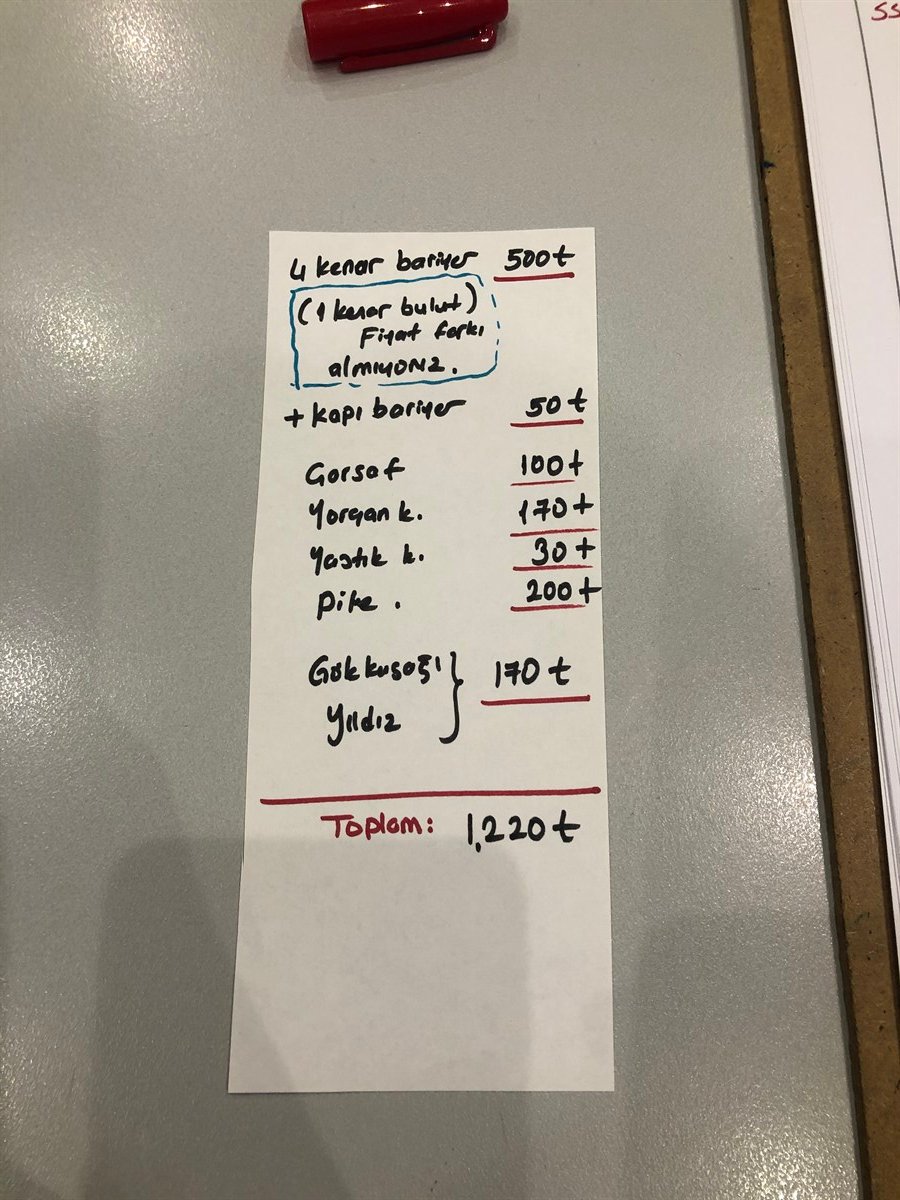 4 kenar bariyer 500t
(1 kenar bulut)
Fiyat farkı
almıyoruz.
+ kapı bariyer 50t
Gorsaf 100t
Yorgan k. 170t
Yastık k. 30t
Pike. 200t
Gökkuşağı } 170t
Yıldız
Toplam: 1,220t
SS